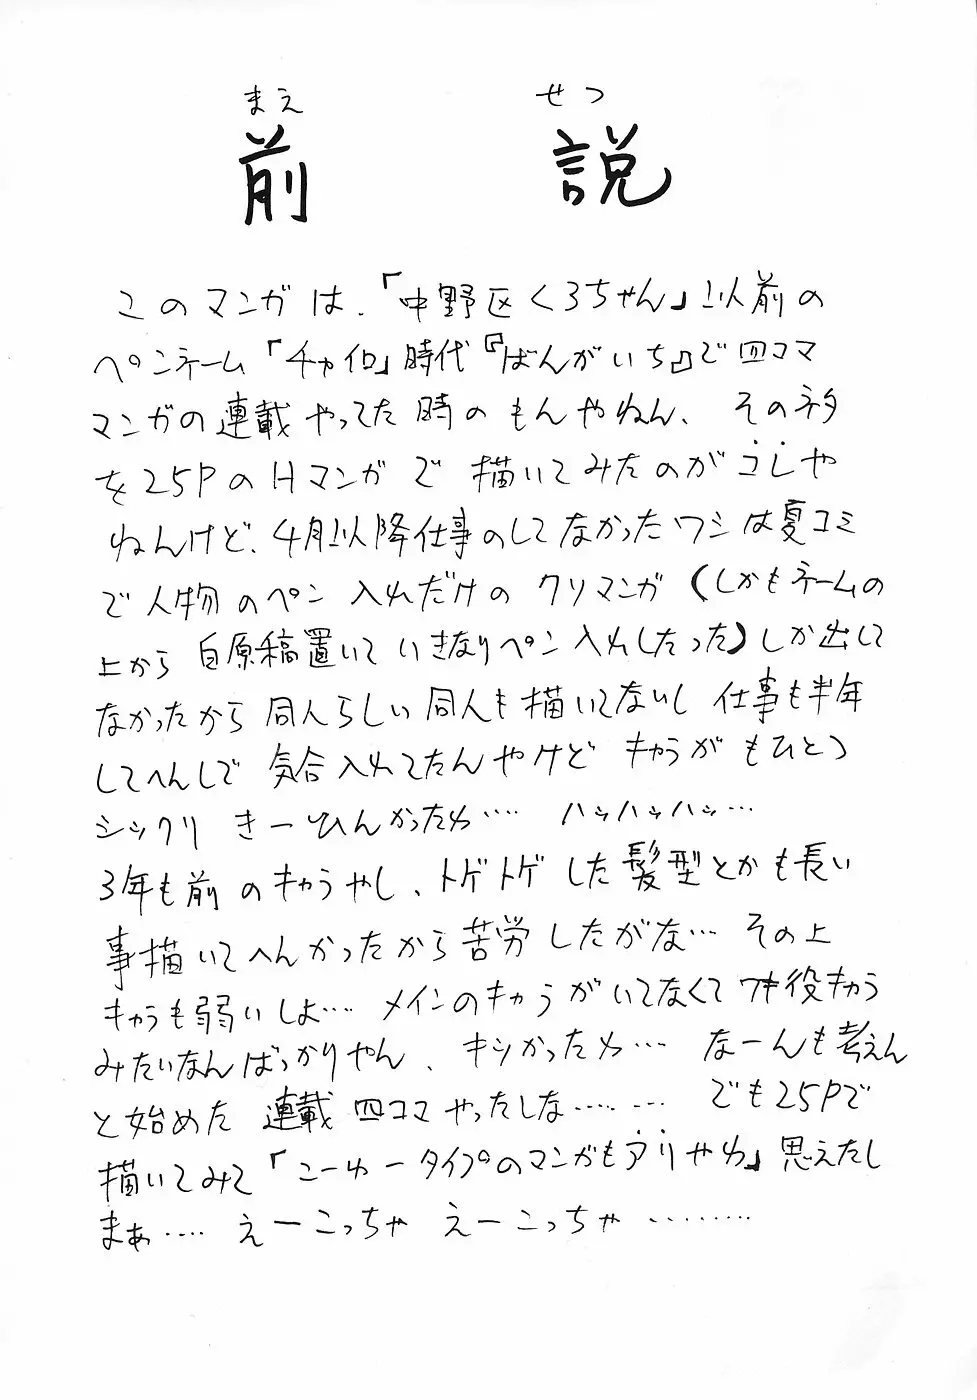 まえ せつ
前 説
このマンガは、「中野区くろちゃん」以前の
ペンネーム「チャイロ」時代『ばんがいち』で四コマ
マンガの連載やってた時のもんやねん、そのネタ
を25PのHマンガで描いてみたのがコレや
ねんけど、4月以降仕事のしてなかったワシは夏コミ
で人物のペン入れだけのクソマンガ(しかもネームの
上から白原稿置いていきなりペン入れしたった)しか出して
なかったから同人らしい同人も描いてないし仕事も半年
してへんしで気合入れてたんやけどキャラがもひとつ
シックリきーひんかったわ…‥ ハッハッハッ…
3年も前のキャラやし、トゲトゲした髪型とかも長い
事描いてへんかったから苦労したがな…その上
キャラも弱いしよ…‥メインのキャラがいてなくてワキ役キャラ
みたいなんばっかりやん、キツかったわ…なーんも考えん
と始めた連載四コマやったしな……… でも25Pで
描いてみて「こーゆータイプのマンガもアリやわ」思えたし
まぁ…‥えーこっちゃえーこっちゃ………